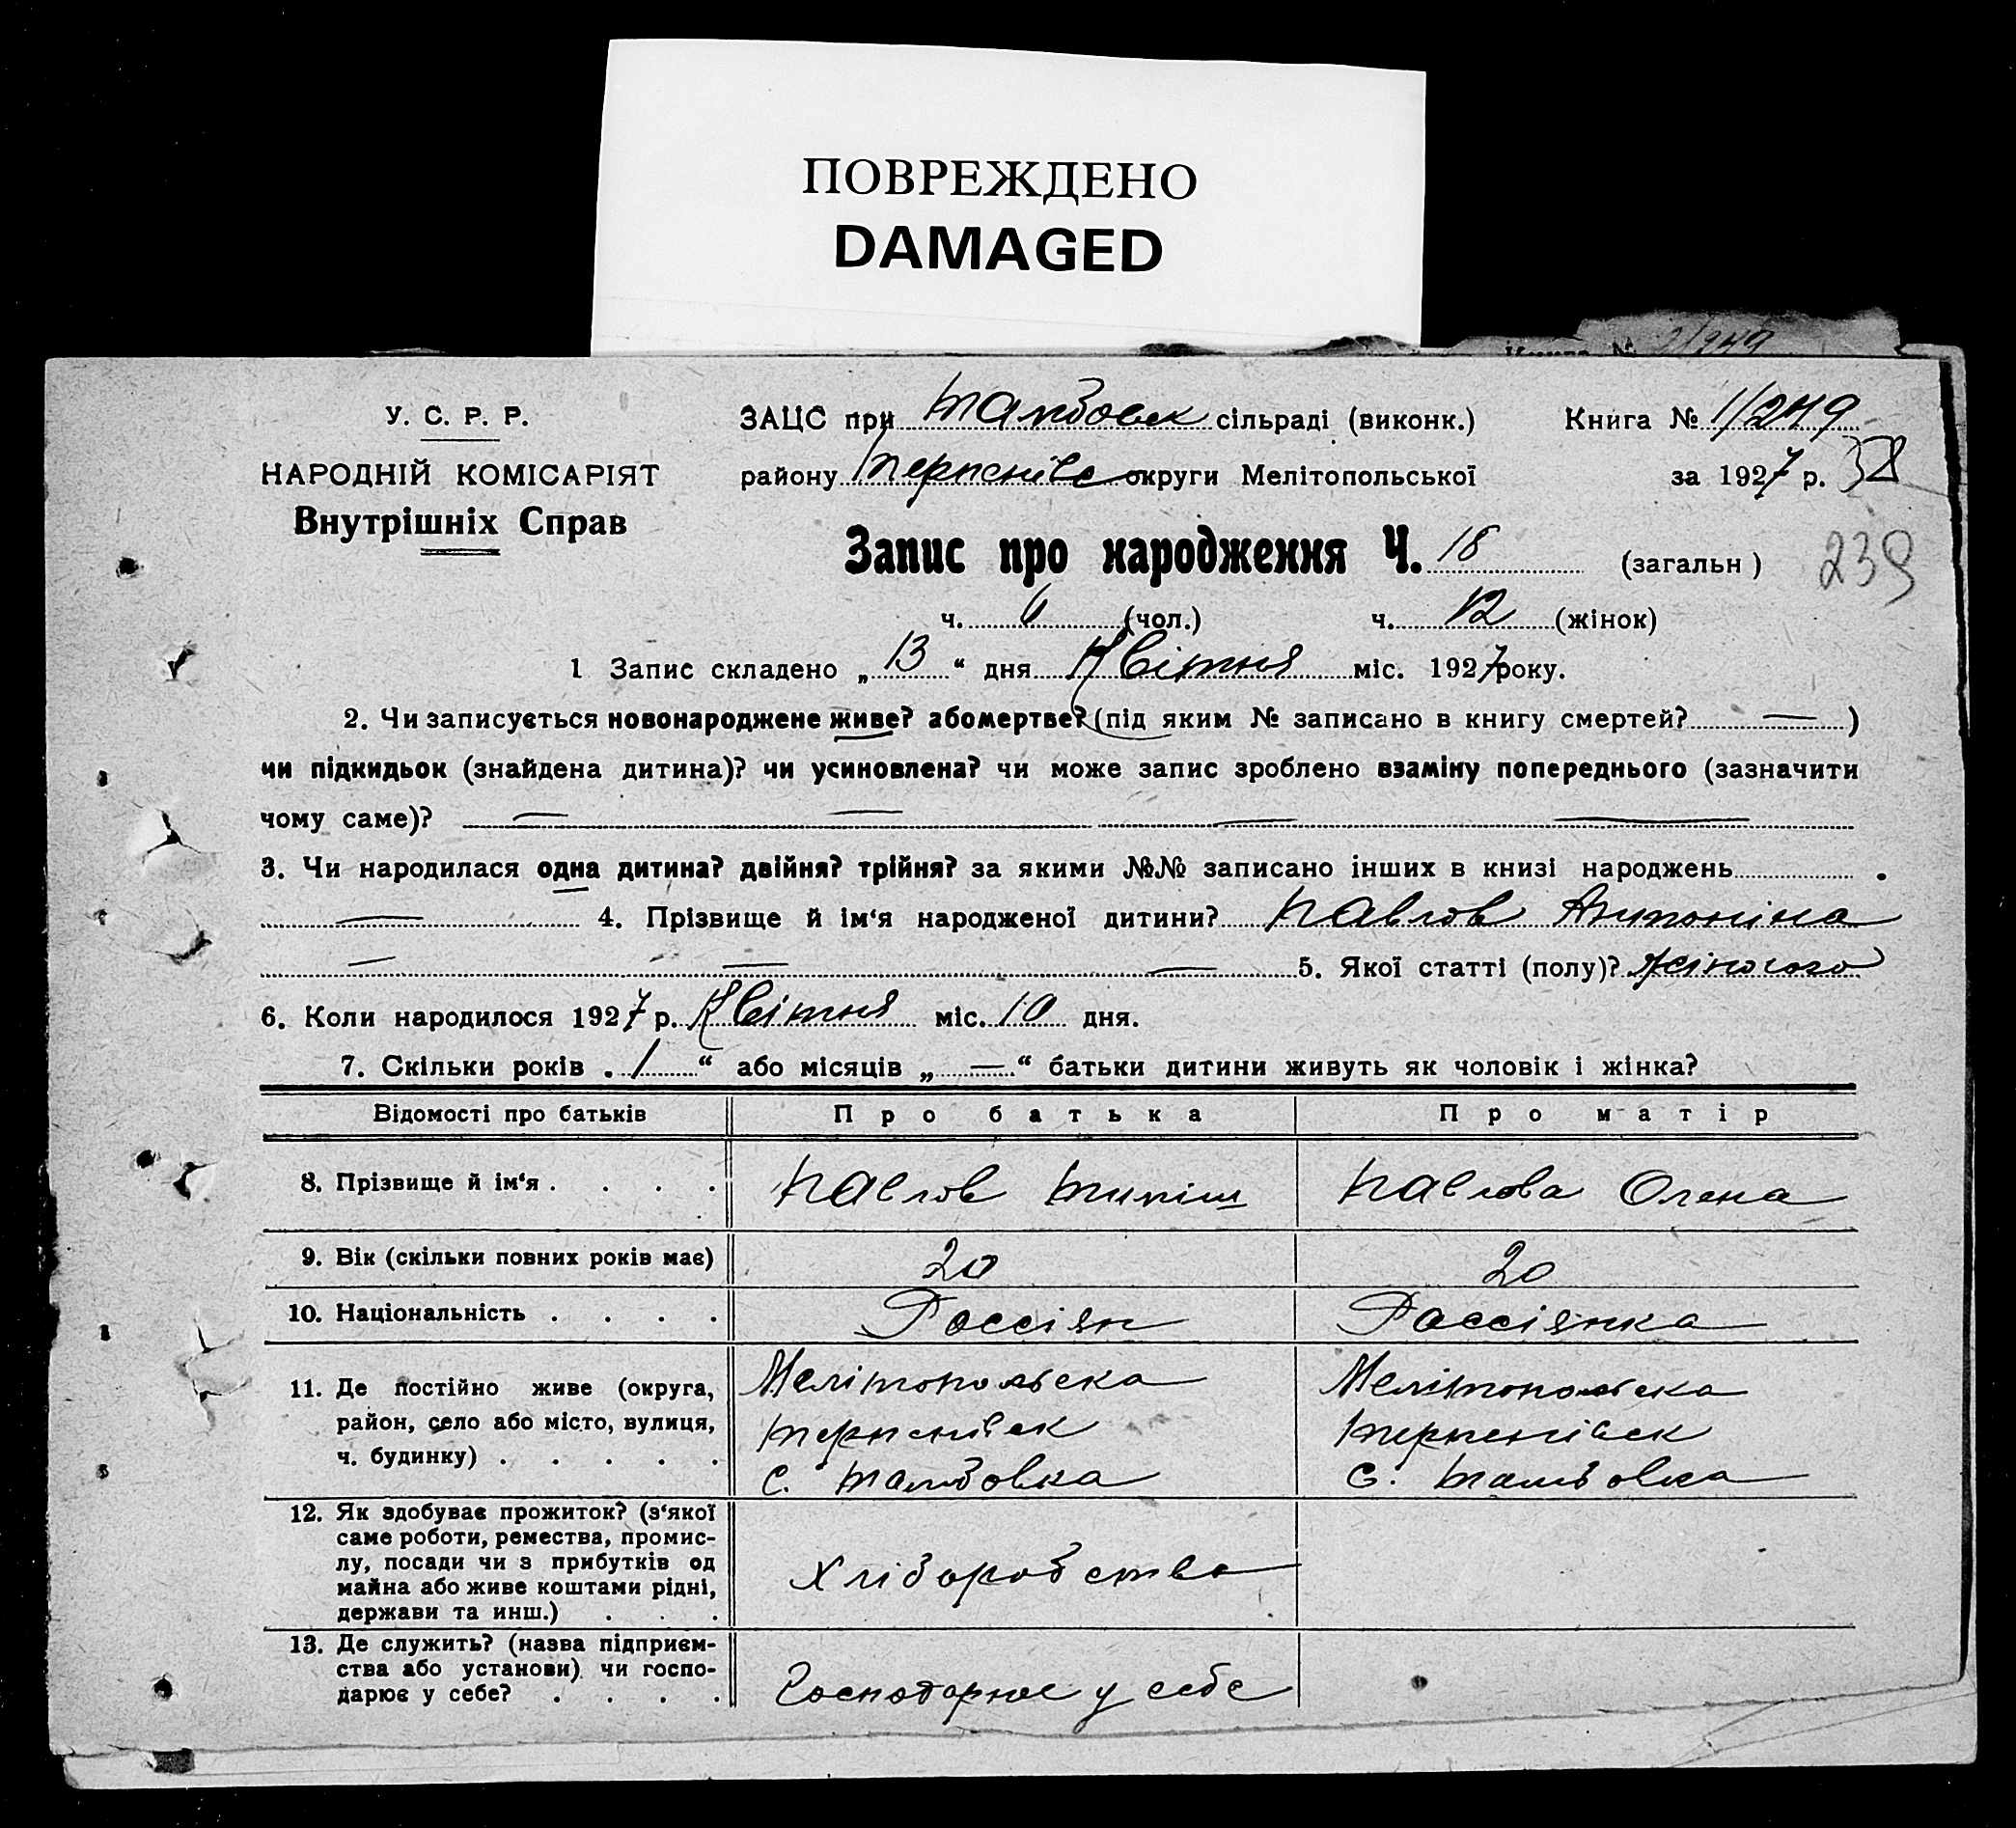 ПОВРЕЖДЕНО
DAMAGED
Книга № 2/249
У. С. Р. Р.
НАРОДНІЙ КОМІСАРІЯТ
Внутрішніх Справ
ЗАЦС при Тамбовск сільраді (виконк.) Книга № 1/249
району Терпенівс округи Мелітопольської за 1927 р. 38
Запис про народження Ч. 18 (загальн) 239
ч. 6 (чол.) ч. 12 (жінок)
1 Запис складено „ 13 “ дня Квітня міс. 1927 року.
2. Чи записується новонароджене живе? або мертве? (під яким № записано в книгу смертей? — )
чи підкидьок (знайдена дитина)? чи усиновлена? чи може запис зроблено взаміну попереднього (зазначити
чому саме)? — — — —
3. Чи народилася одна дитина? двійня? трійня? за якими №№ записано інших в книзі народжень .
— 4. Прізвище й ім‘я народженої дитини? Павлов Антоніна
— — — 5. Якої статті (полу)? жіночого
6. Коли народилося 1927 р. Квітня міс. 10 дня.
7. Скільки років . 1 “ або місяців „ — “ батьки дитини живуть як чоловік і жінка?
Відомості про батьків Про батька Про матір
8. Прізвище й ім‘я . . . . Павлов Павлова Олена
9. Вік (скільки повних років має) 20 20
10. Національність . . . . Россіян Россіянка
11. Де постійно живе (округа, Мелітопольска Мелітопольска
район, село або місто, вулиця, Терпенівск Терпенівск
ч. будинку) . . . . . с. Тамбовка с. Тамбовка
12. Як здобуває прожиток? (з‘якої
саме роботи, ремества, промис-
лу, посади чи з прибутків од Хліборобство
майна або живе коштами рідні,
держави та инш.) . . .
13. Де служить? (назва підприєм-
ства або установи) чи госпо-
дарює у себе? . . . . Господарює у себе